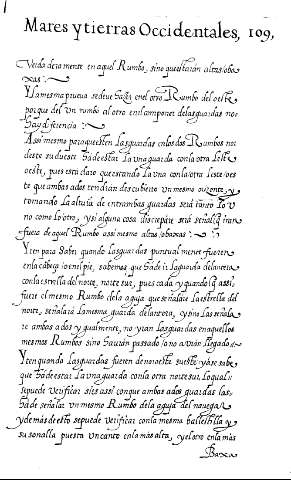 Mares y tierras Occidentales, 109,
Verdaderamente en aquel Rumbo, sino que estaran altas o ba
xas:
Y la mesma prueva se deve hazer en el otro Rumbo del oeste
porque del un rumbo al otro en el componer de las guardas no
hay diferencia:
Assi mesmo para questen las guardas en los dos Rumbos nor
deste sudueste ha de estar la una guarda con la otra Leste
oeste, pues esta claro que estando la una con la otra leste oes
te que ambas a dos tendran descubierto un mesmo orizonte, y
tomando La altura de entrambas guardas sera tanto lo u
no como lo otro, y si alguna cosa discrepare sera señal que estan
fuera de aquel Rumbo assi mesmo altas o baxas:
Yten para saber quando las guardas puntualmente fueren
en la cabeça o en el pie, sabemos que ha de ir la guarda delantera
con la estrella del norte, norte sur, pues cada y quando que assi
fuere el mesmo Rumbo de la aguja que señalare la estrella del
norte, señalara la mesma guarda delantera, y sino las señala
re ambas a dos ygualmente, no ystan las guardas en aquellos
mesmos Rumbos sino hauran passado, o no avran llegado.
Yten quando las guardas fueren de noroeste sueste ya se sabe
que ha de estar La una guarda con la otra norte sur. Lo qual se
se puede verificar si es assi con que ambas a dos guardas las
ha de señalar un mesmo Rumbo de la aguja del navegar,
y de mas de esto se puede verificar con la mesma ballestilla y
su sonalla puesta un canto en la mas alta, y el otro en la mas
Baxa